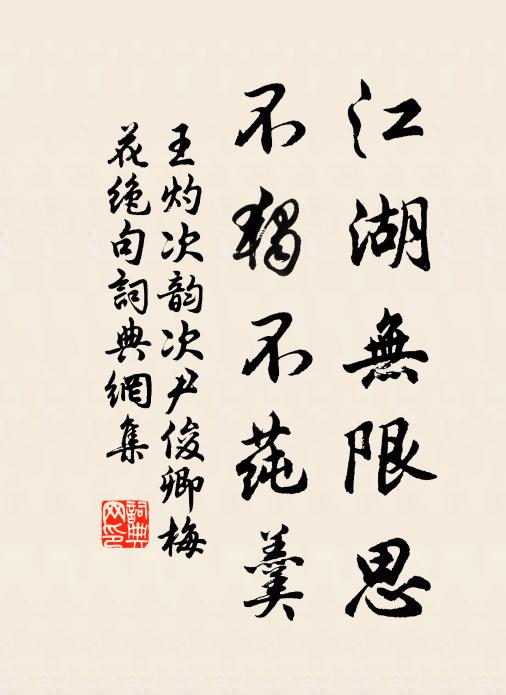 江湖無限思
不獨不蒓羹
王灼次韵次尹俊卿梅
花绝句詞典網集
詞典
网印